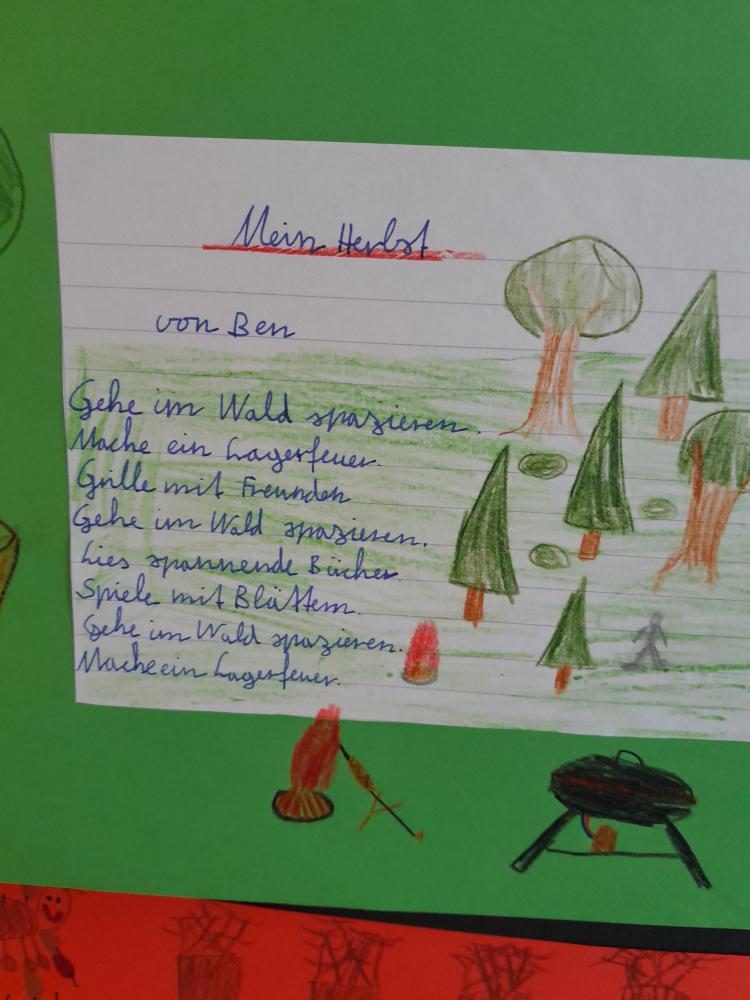 Mein Herbst
von Ben
Gehe im Wald spazieren.
Mache ein Lagerfeuer.
Grille mit Freunden
Gehe im Wald spazieren.
Lies spannende Bücher.
Spiele mit Blättern.
Gehe im Wald spazieren.
Mache ein Lagerfeuer.